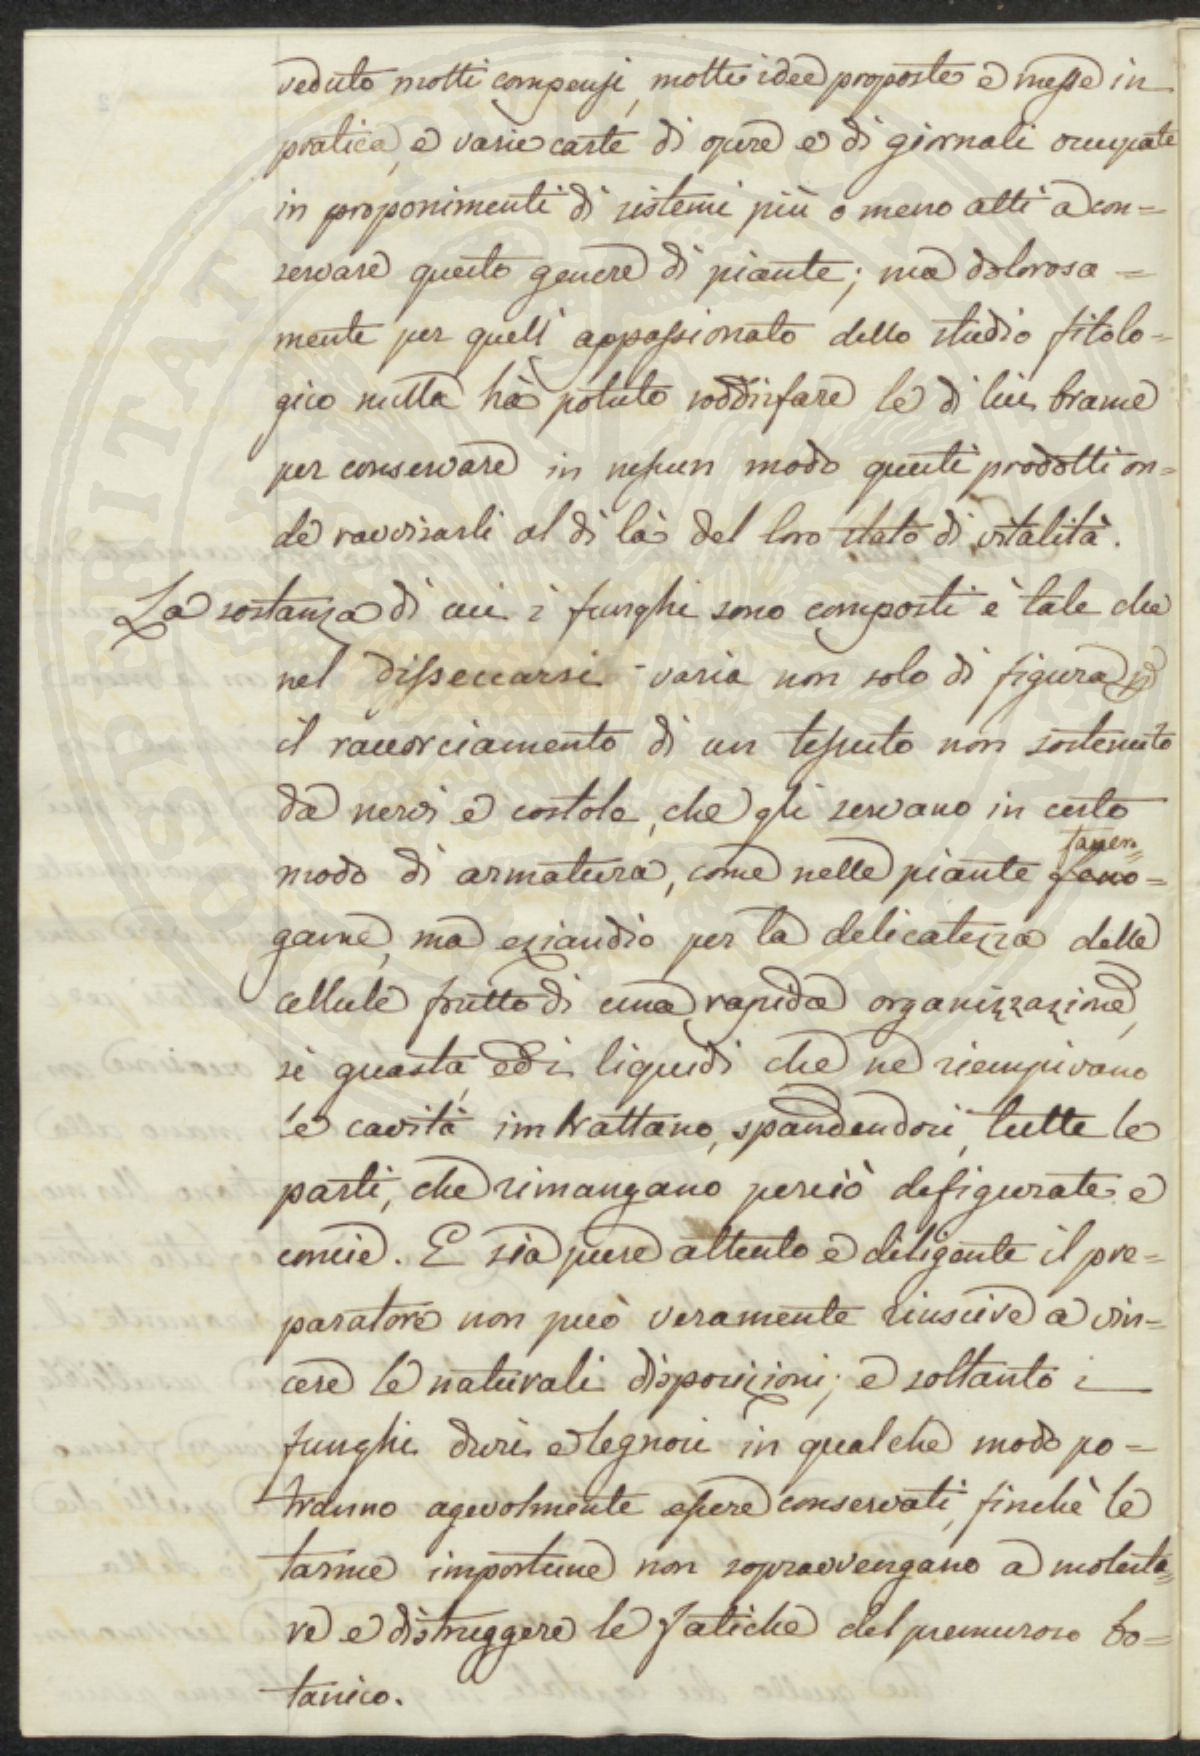 veduto molti compensi, molte idee proposte e messe in
pratica, e varie carte di opere e di giornali occupate
in proponimenti di sistemi più o meno atti a con=
servare questo genere di piante; ma dolorosa=
mente per quell' appassionato dello studio fitolo=
gico nulla hà potuto soddisfare le di lui brame
per conservare in nessun modo questi prodotti on=
de ravvisarli al di là del loro stato di vitalità.
La sostanza di cui i funghi sono composti è tale che
nel disseccarsi varia non solo di figura pel
il raccorciamento di un tessuto non sostenuto
da nervi e costole, che gli servano in certo
modo di armatura, come nelle piante faner=
game, ma eziandio per la delicatezza delle
cellule frutto di una rapida organizzazione,
si guasta, ed i liquidi che ne riempivano
le cavità imbrattano, spandendosi, tutte le
parti, che rimangano perciò defigurate e
concie. E sia pure attento e diligente il pre=
paratore non può veramente riuscire a vin=
cere le naturali disposizioni; e soltanto i
funghi duri e legnosi in qualche modo po=
tranno agevolmente essere conservati, finchè le
tarme importune non sopravvengano a molesta=
re e distruggere le fatiche del premuroso bo=
tanico.